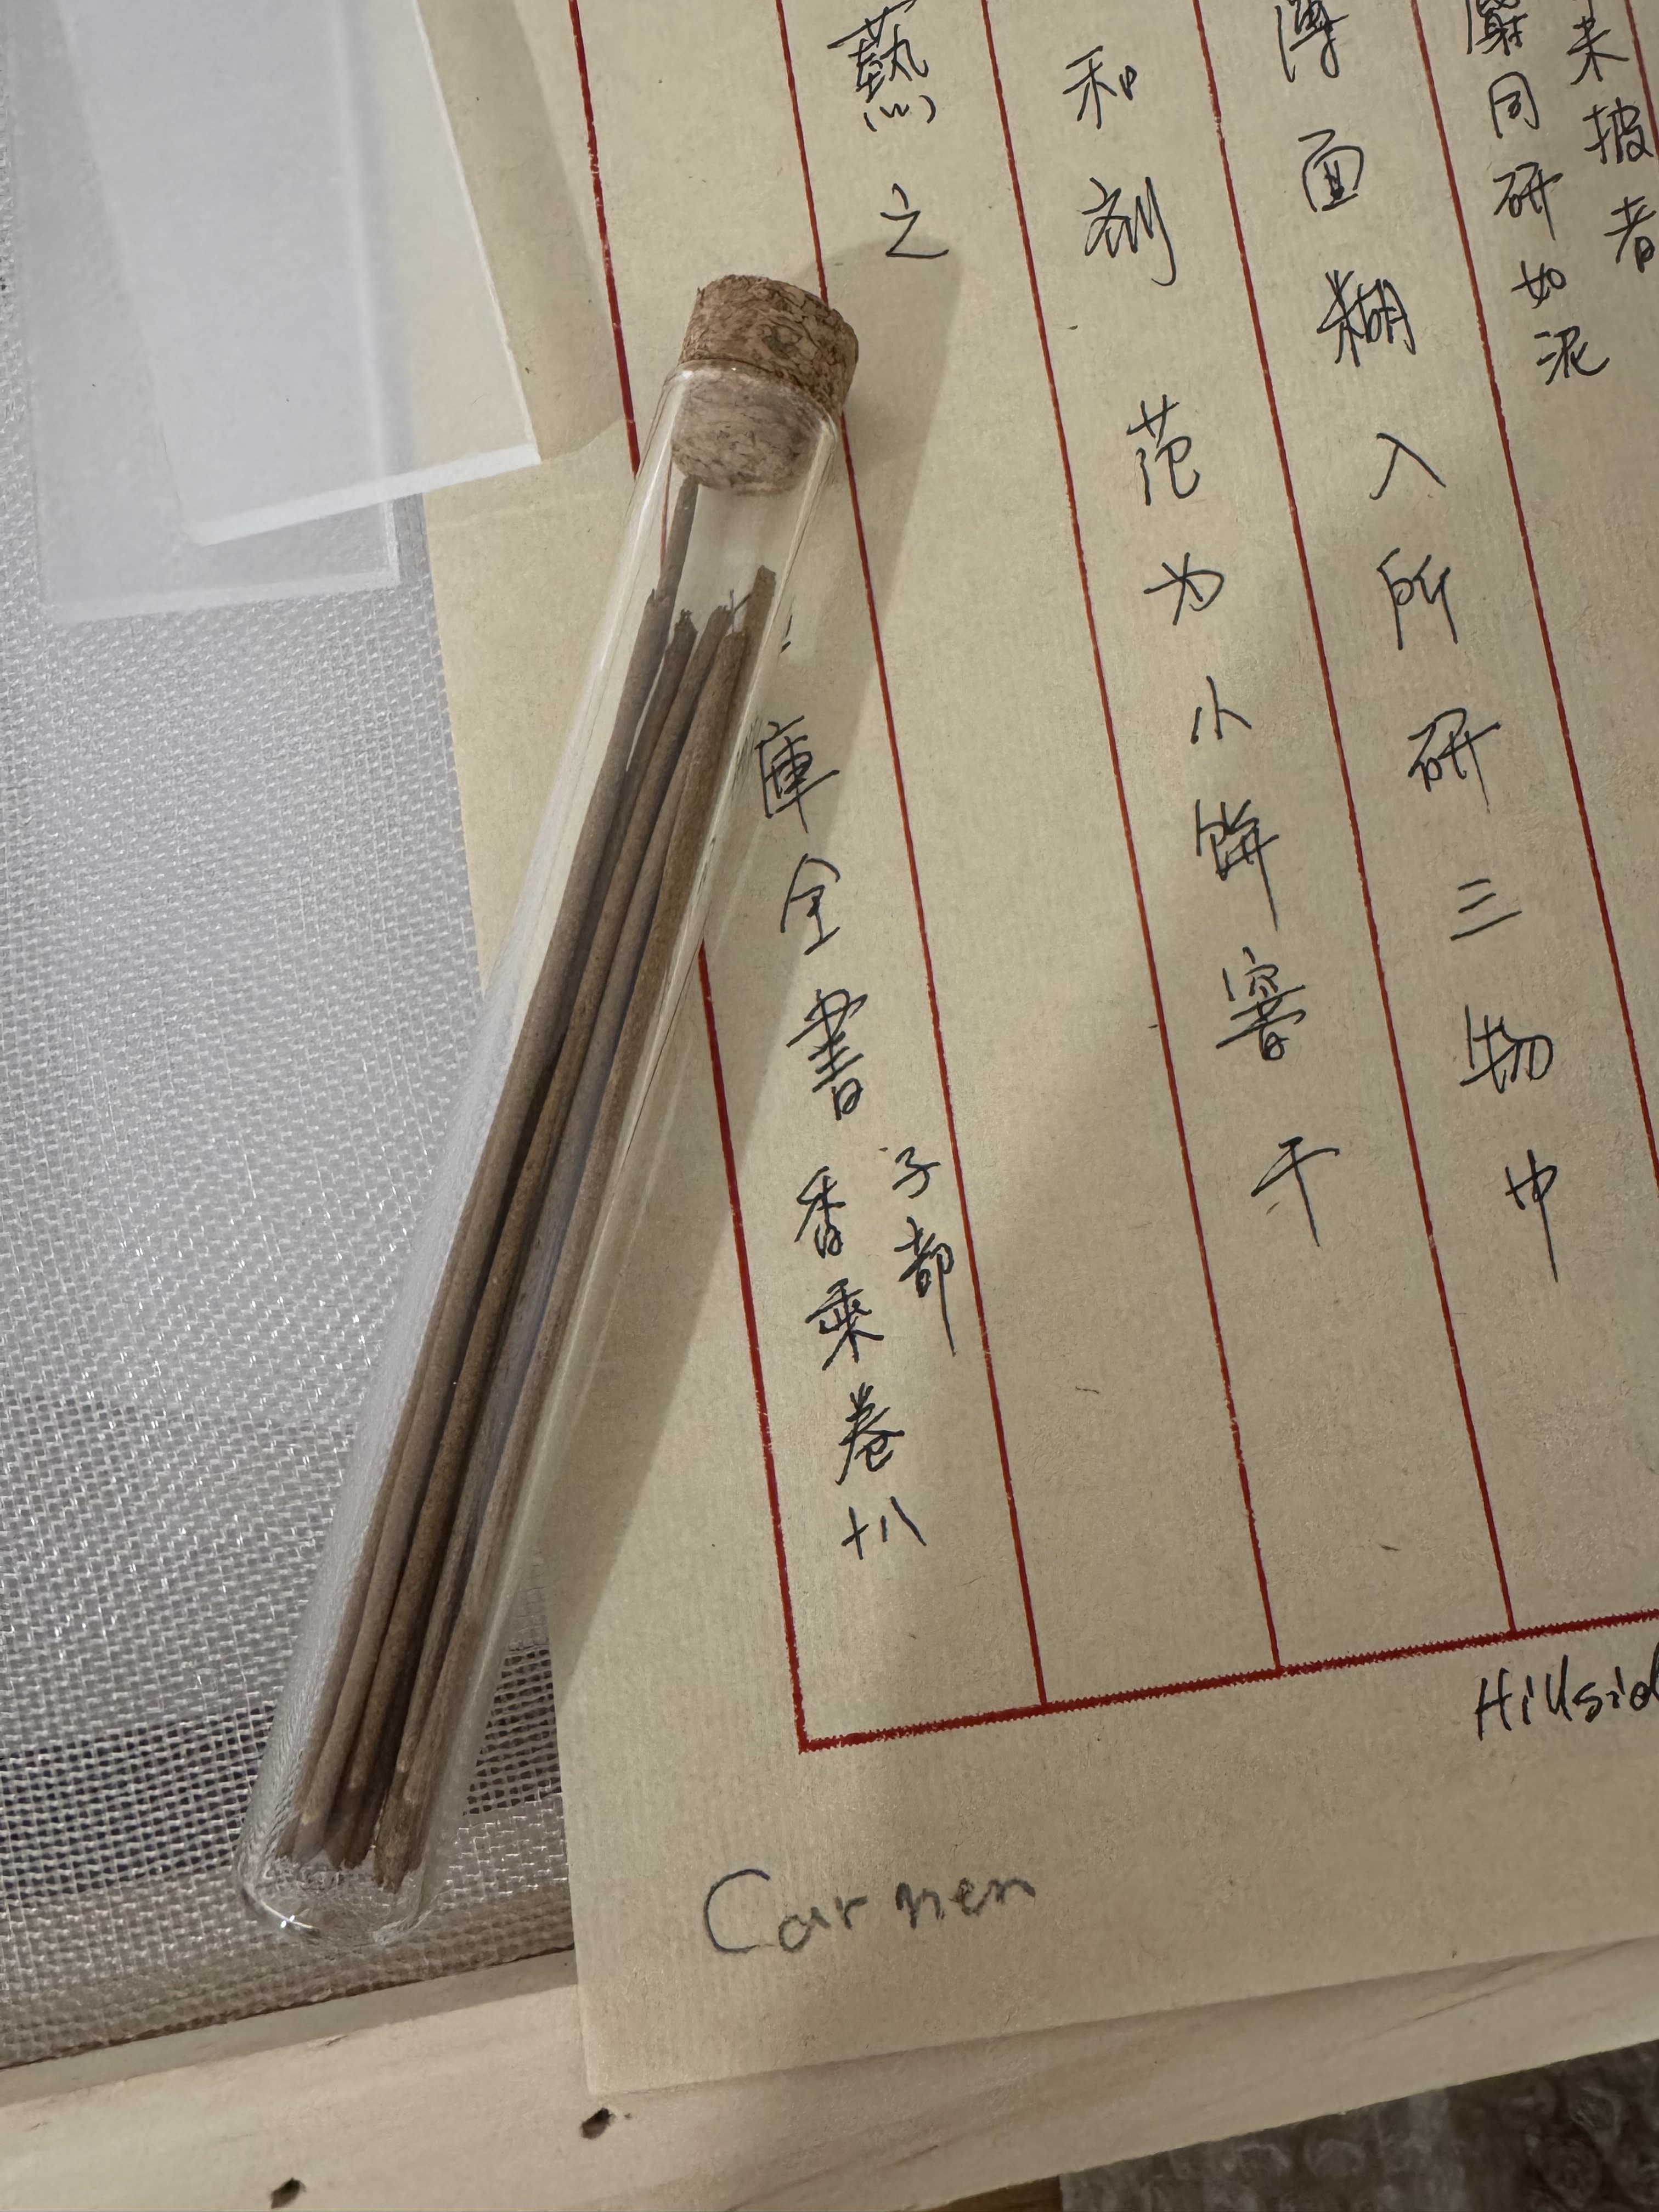 披者
麝同研如泥
薄面糊入所研三物中
和剂范为小餅窨干
爇之
庫全書
子都
香乘卷十八
Hillsid
Carmen